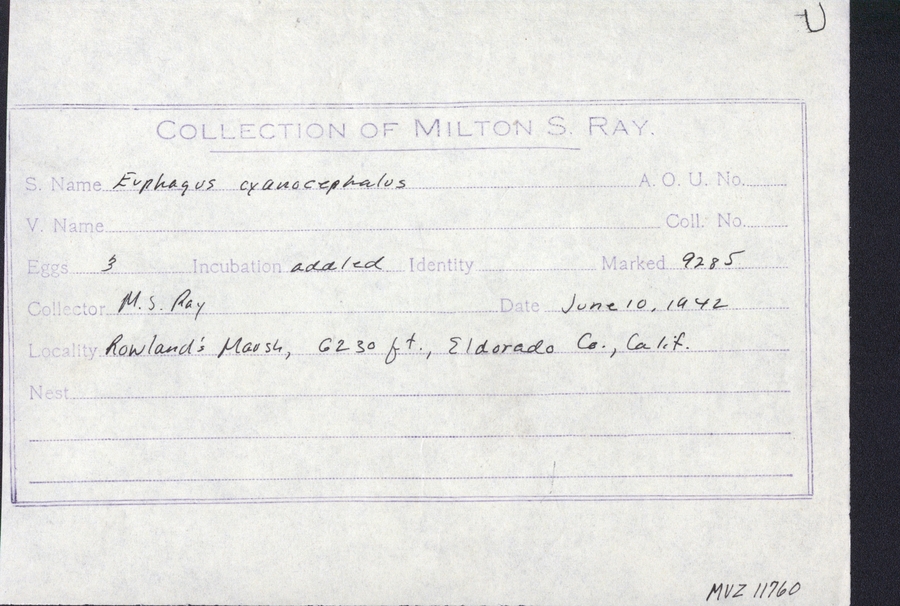 U
COLLECTION OF MILTON S. RAY.
S. Name Euphagus cyanocephalus A. O. U. No.
V. Name Coll. No.
Eggs 3 Incubation addled Identity Marked 9285
Collector M. S. Ray Date June 10, 1942
Locality Rowland's Marsh, 6230 ft., Eldorado Co., Calif.
Nest
MVZ 11760